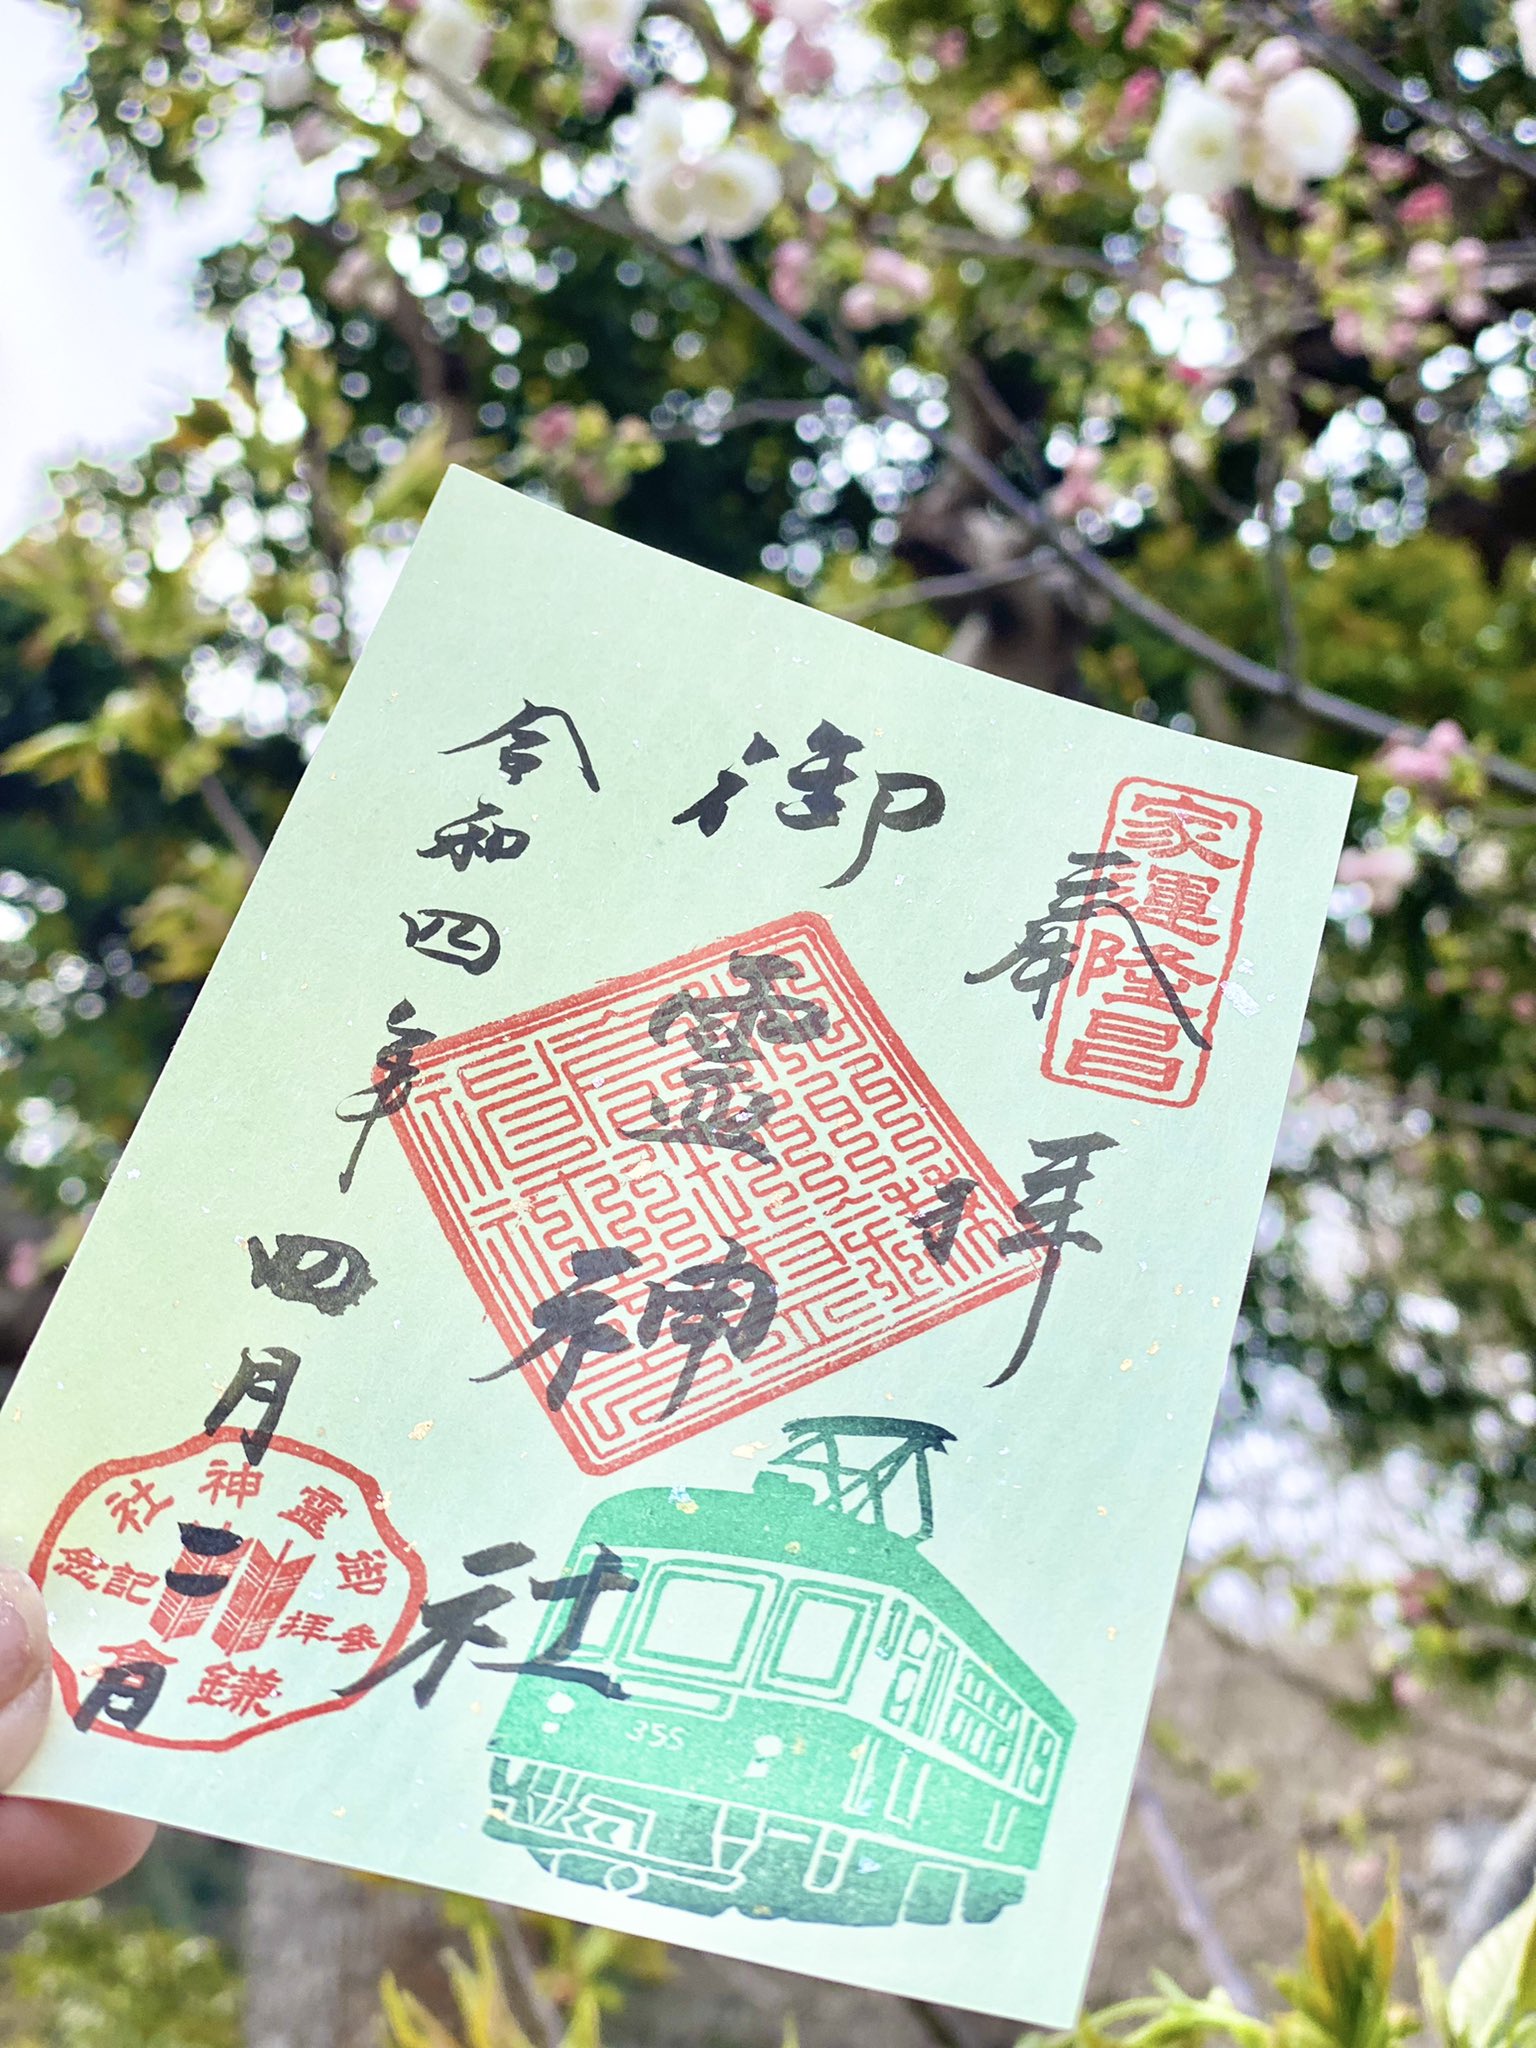 家運隆昌
奉拝
御靈神社
令和四年四月二日
御靈神社
参拝記念
鎌倉
355